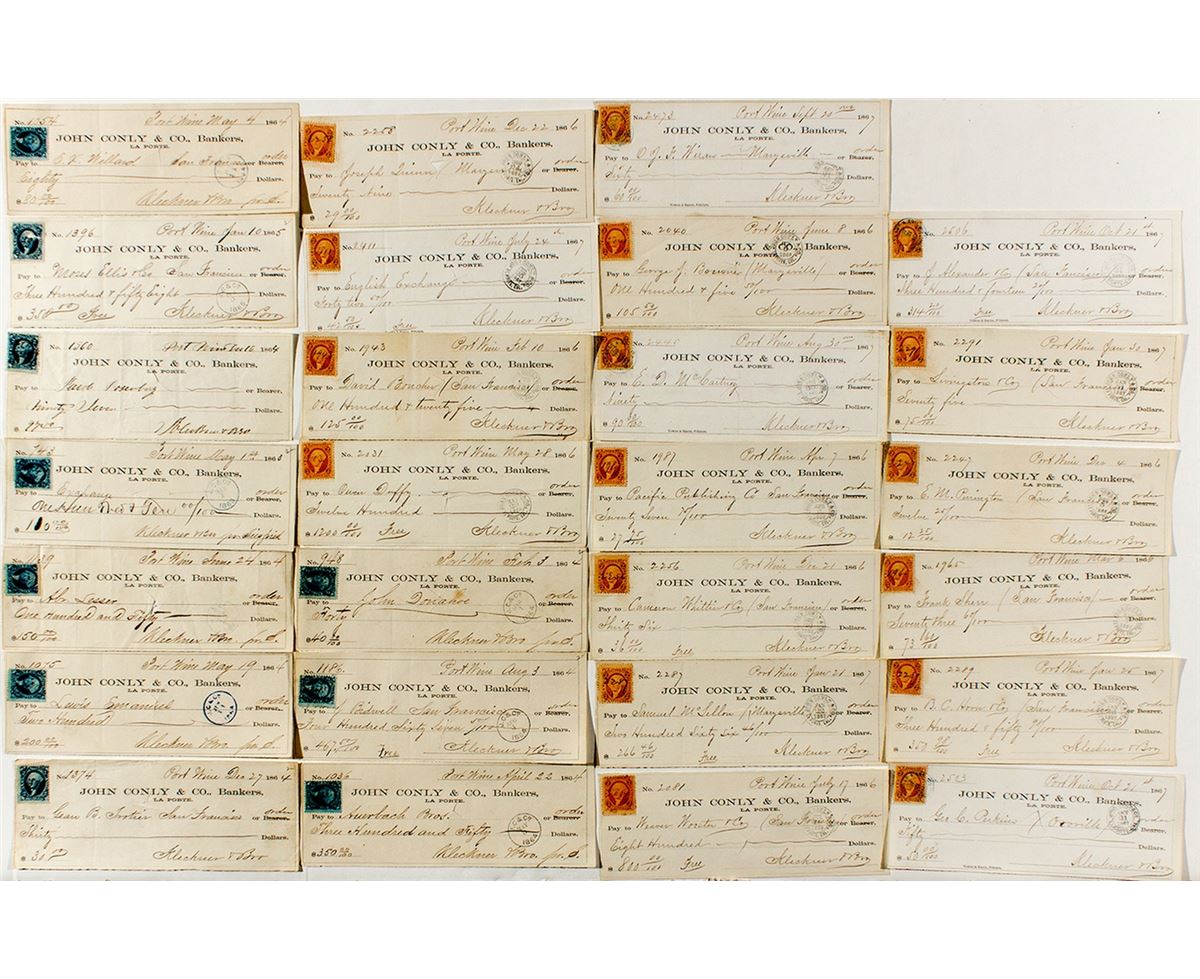 No. 1054 Port Wine May 4 1864
JOHN CONLY & CO., Bankers,
LA PORTE.
Pay to E. K. Willard San Francisco order or Bearer,
Eighty Dollars.
80 00/100 Kleckner & Bro pr. S.
No. 1396 Port Wine Jan 10 1865
JOHN CONLY & CO., Bankers,
LA PORTE.
Pay to Moses Ellis & Co San Francisco order or Bearer,
Three Hundred & fifty Eight Dollars.
$ 358 00 Free Kleckner & Bro
No. 1360 Port Wine 1864
JOHN CONLY & CO., Bankers,
LA PORTE.
Pay to or Bearer,
Ninety Seven Dollars.
Kleckner & Bro
Port Wine May 1st 186
JOHN CONLY & CO., Bankers,
LA PORTE.
Pay to Exchange order or Bearer,
One Hundred & Ten 00/100 Dollars.
$ 110 Kleckner & Bro
Port Wine June 24 1864
JOHN CONLY & CO., Bankers,
LA PORTE.
Pay to Ab. Lesser order or Bearer,
One Hundred and Fifty Dollars.
$ 150 00/100 Kleckner & Bro. pr. S.
No. 1075 Port Wine May 19 1864
JOHN CONLY & CO., Bankers,
LA PORTE.
Pay to Lewis Emanuel order or Bearer,
Two Hundred Dollars.
$ 200 00/100 Kleckner & Bro. pr. S.
No. 1374 Port Wine Dec 27 1864
JOHN CONLY & CO., Bankers,
LA PORTE.
Pay to Jean B. Tortier San Francisco order or Bearer,
Thirty Dollars.
$ 30 00 Kleckner & Bro
No. 2258 Port Wine Dec 22 1866
JOHN CONLY & CO., Bankers,
LA PORTE.
Pay to Joseph Quinn order or Bearer,
Twenty Nine Dollars.
$ 29 00/100 Kleckner & Bro
No. 2411 Port Wine July 24th 1867
JOHN CONLY & CO., Bankers,
LA PORTE.
Pay to English Exchange order or Bearer,
Forty two 50/100 Dollars.
$ 42 50/100 Free Kleckner & Bro
No. 1943 Port Wine Feb 10 1866
JOHN CONLY & CO., Bankers,
LA PORTE.
Pay to David Boucher (San Francisco) order or Bearer,
One Hundred & twenty five Dollars.
$ 125 00/100 Kleckner & Bro
No. 2031 Port Wine May 28 1866
JOHN CONLY & CO., Bankers,
LA PORTE.
Pay to Owen Duffy order or Bearer,
Twelve Hundred Dollars.
$ 1200 00/100 Free Kleckner & Bro
No. 948 Port Wine Feb 3 1864
JOHN CONLY & CO., Bankers,
LA PORTE.
Pay to John Donahoe order or Bearer,
Forty Dollars.
$ 40 00/100 Kleckner & Bro. pr. S.
No. 1186 Port Wine Aug 3 1864
JOHN CONLY & CO., Bankers,
LA PORTE.
Pay to J Bidwell San Francisco order or Bearer,
Four Hundred Sixty Seven Dollars.
$ 467 Free Kleckner & Bro
No. 1036 Port Wine April 22 1864
JOHN CONLY & CO., Bankers,
LA PORTE.
Pay to Auerbach Bros. order or Bearer,
Three Hundred and Fifty Dollars.
$ 350 00/100 Kleckner & Bro. pr. S.
No. 2473 Port Wine Sept 20 1867
JOHN CONLY & CO., Bankers,
LA PORTE.
Pay to Marysville order or Bearer,
Sixty Dollars.
$ 60 00/100 Kleckner & Bro
No. 2040 Port Wine June 8 1866
JOHN CONLY & CO., Bankers,
LA PORTE.
Pay to George J. (Marysville) order or Bearer,
One Hundred & five 50/100 Dollars.
$ 105 50/100 Kleckner & Bro
No. 2445 Port Wine Aug 30 1867
JOHN CONLY & CO., Bankers,
LA PORTE.
Pay to E. D. McCartney order or Bearer,
Ninety Dollars.
$ 90 00/100 Kleckner & Bro
No. 1987 Port Wine Apr 7 1866
JOHN CONLY & CO., Bankers,
LA PORTE.
Pay to Pacific Publishing Co San Francisco order or Bearer,
Twenty Seven 75/100 Dollars.
$ 27 75/100 Kleckner & Bro
No. 2256 Port Wine Dec 21 1866
JOHN CONLY & CO., Bankers,
LA PORTE.
Pay to Cameron Whittier & Co (San Francisco) order or Bearer,
Thirty Six Dollars.
$ 36 00/100 Free Kleckner & Bro
No. 2287 Port Wine Jan 21 1867
JOHN CONLY & CO., Bankers,
LA PORTE.
Pay to Samuel McLellon (Marysville order or Bearer,
Two Hundred Sixty Six 46/100 Dollars.
$ 266 46/100 Free Kleckner & Bro
No. 2081 Port Wine July 17 1866
JOHN CONLY & CO., Bankers,
LA PORTE.
Pay to Weaver Wooster & Co (San Francisco order or Bearer,
Eight Hundred Dollars.
$ 800 00/100 Free Kleckner & Bro
No. 2506 Port Wine Oct 21st 1867
JOHN CONLY & CO., Bankers,
LA PORTE.
Pay to J. Alexander & Co (San Francisco) order or Bearer,
Three Hundred & Fourteen 20/100 Dollars.
$ 314 20/100 Free Kleckner & Bro
No. 2291 Port Wine Jan 30 1867
JOHN CONLY & CO., Bankers,
LA PORTE.
Pay to Livingston & Co (San Francisco) order or Bearer,
Seventy five Dollars.
$ 75 00/100 Kleckner & Bro
No. 2247 Port Wine Dec 4 1866
JOHN CONLY & CO., Bankers,
LA PORTE.
Pay to E. M. Purington (San Francisco) order or Bearer,
Twelve 25/100 Dollars.
$ 12 25/100 Kleckner & Bro
No. 1965 Port Wine Mar 1866
JOHN CONLY & CO., Bankers,
LA PORTE.
Pay to Frank Sherr (San Francisco) order or Bearer,
Seventy three Dollars.
$ 73 Kleckner & Bro
No. 2289 Port Wine Jan 25 1867
JOHN CONLY & CO., Bankers,
LA PORTE.
Pay to B. C. Horn & Co (San Francisco) order or Bearer,
Three Hundred & fifty Dollars.
Free Kleckner & Bro
No. 2503 Port Wine Oct 21st 1867
JOHN CONLY & CO., Bankers,
LA PORTE.
Pay to Geo C. Perkins Oroville order or Bearer,
Fifty Dollars.
$ 50 00/100 Kleckner & Bro